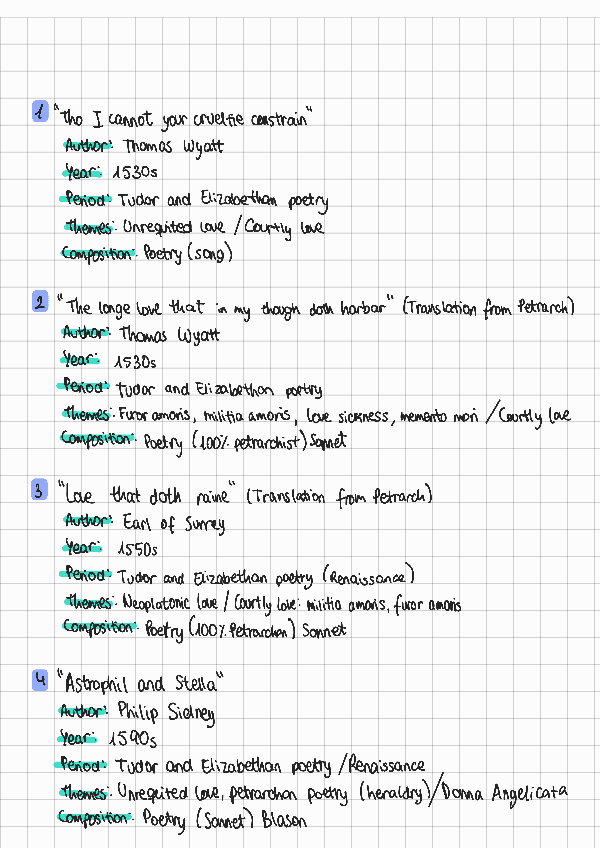 1 "tho I cannot your crueltie constrain"
Author: Thomas Wyatt
Year: 1530s
Period: Tudor and Elizabethan poetry
Themes: Unrequited love / Courtly love
Composition: Poetry (song)
2 "The longe love that in my though doth harbar" (Translation from Petrarch)
Author: Thomas Wyatt
Year: 1530s
Period: Tudor and Elizabethan poetry
Themes: Furor amoris, militia amoris, love sickness, memento mori / Courtly love
Composition: Poetry (100% petrarchist) Sonnet
3 "Love that doth raine" (Translation from Petrarch)
Author: Earl of Surrey
Year: 1550s
Period: Tudor and Elizabethan poetry (Renaissance)
Themes: Neoplatonic love / Courtly love: militia amoris, furor amoris
Composition: Poetry (100% Petrarchan) Sonnet
4 "Astrophil and Stella"
Author: Philip Sidney
Year: 1590s
Period: Tudor and Elizabethan poetry / Renaissance
Themes: Unrequited Love, petrarchan poetry (heraldry) / Donna Angelicata
Composition: Poetry (Sonnet) Blason